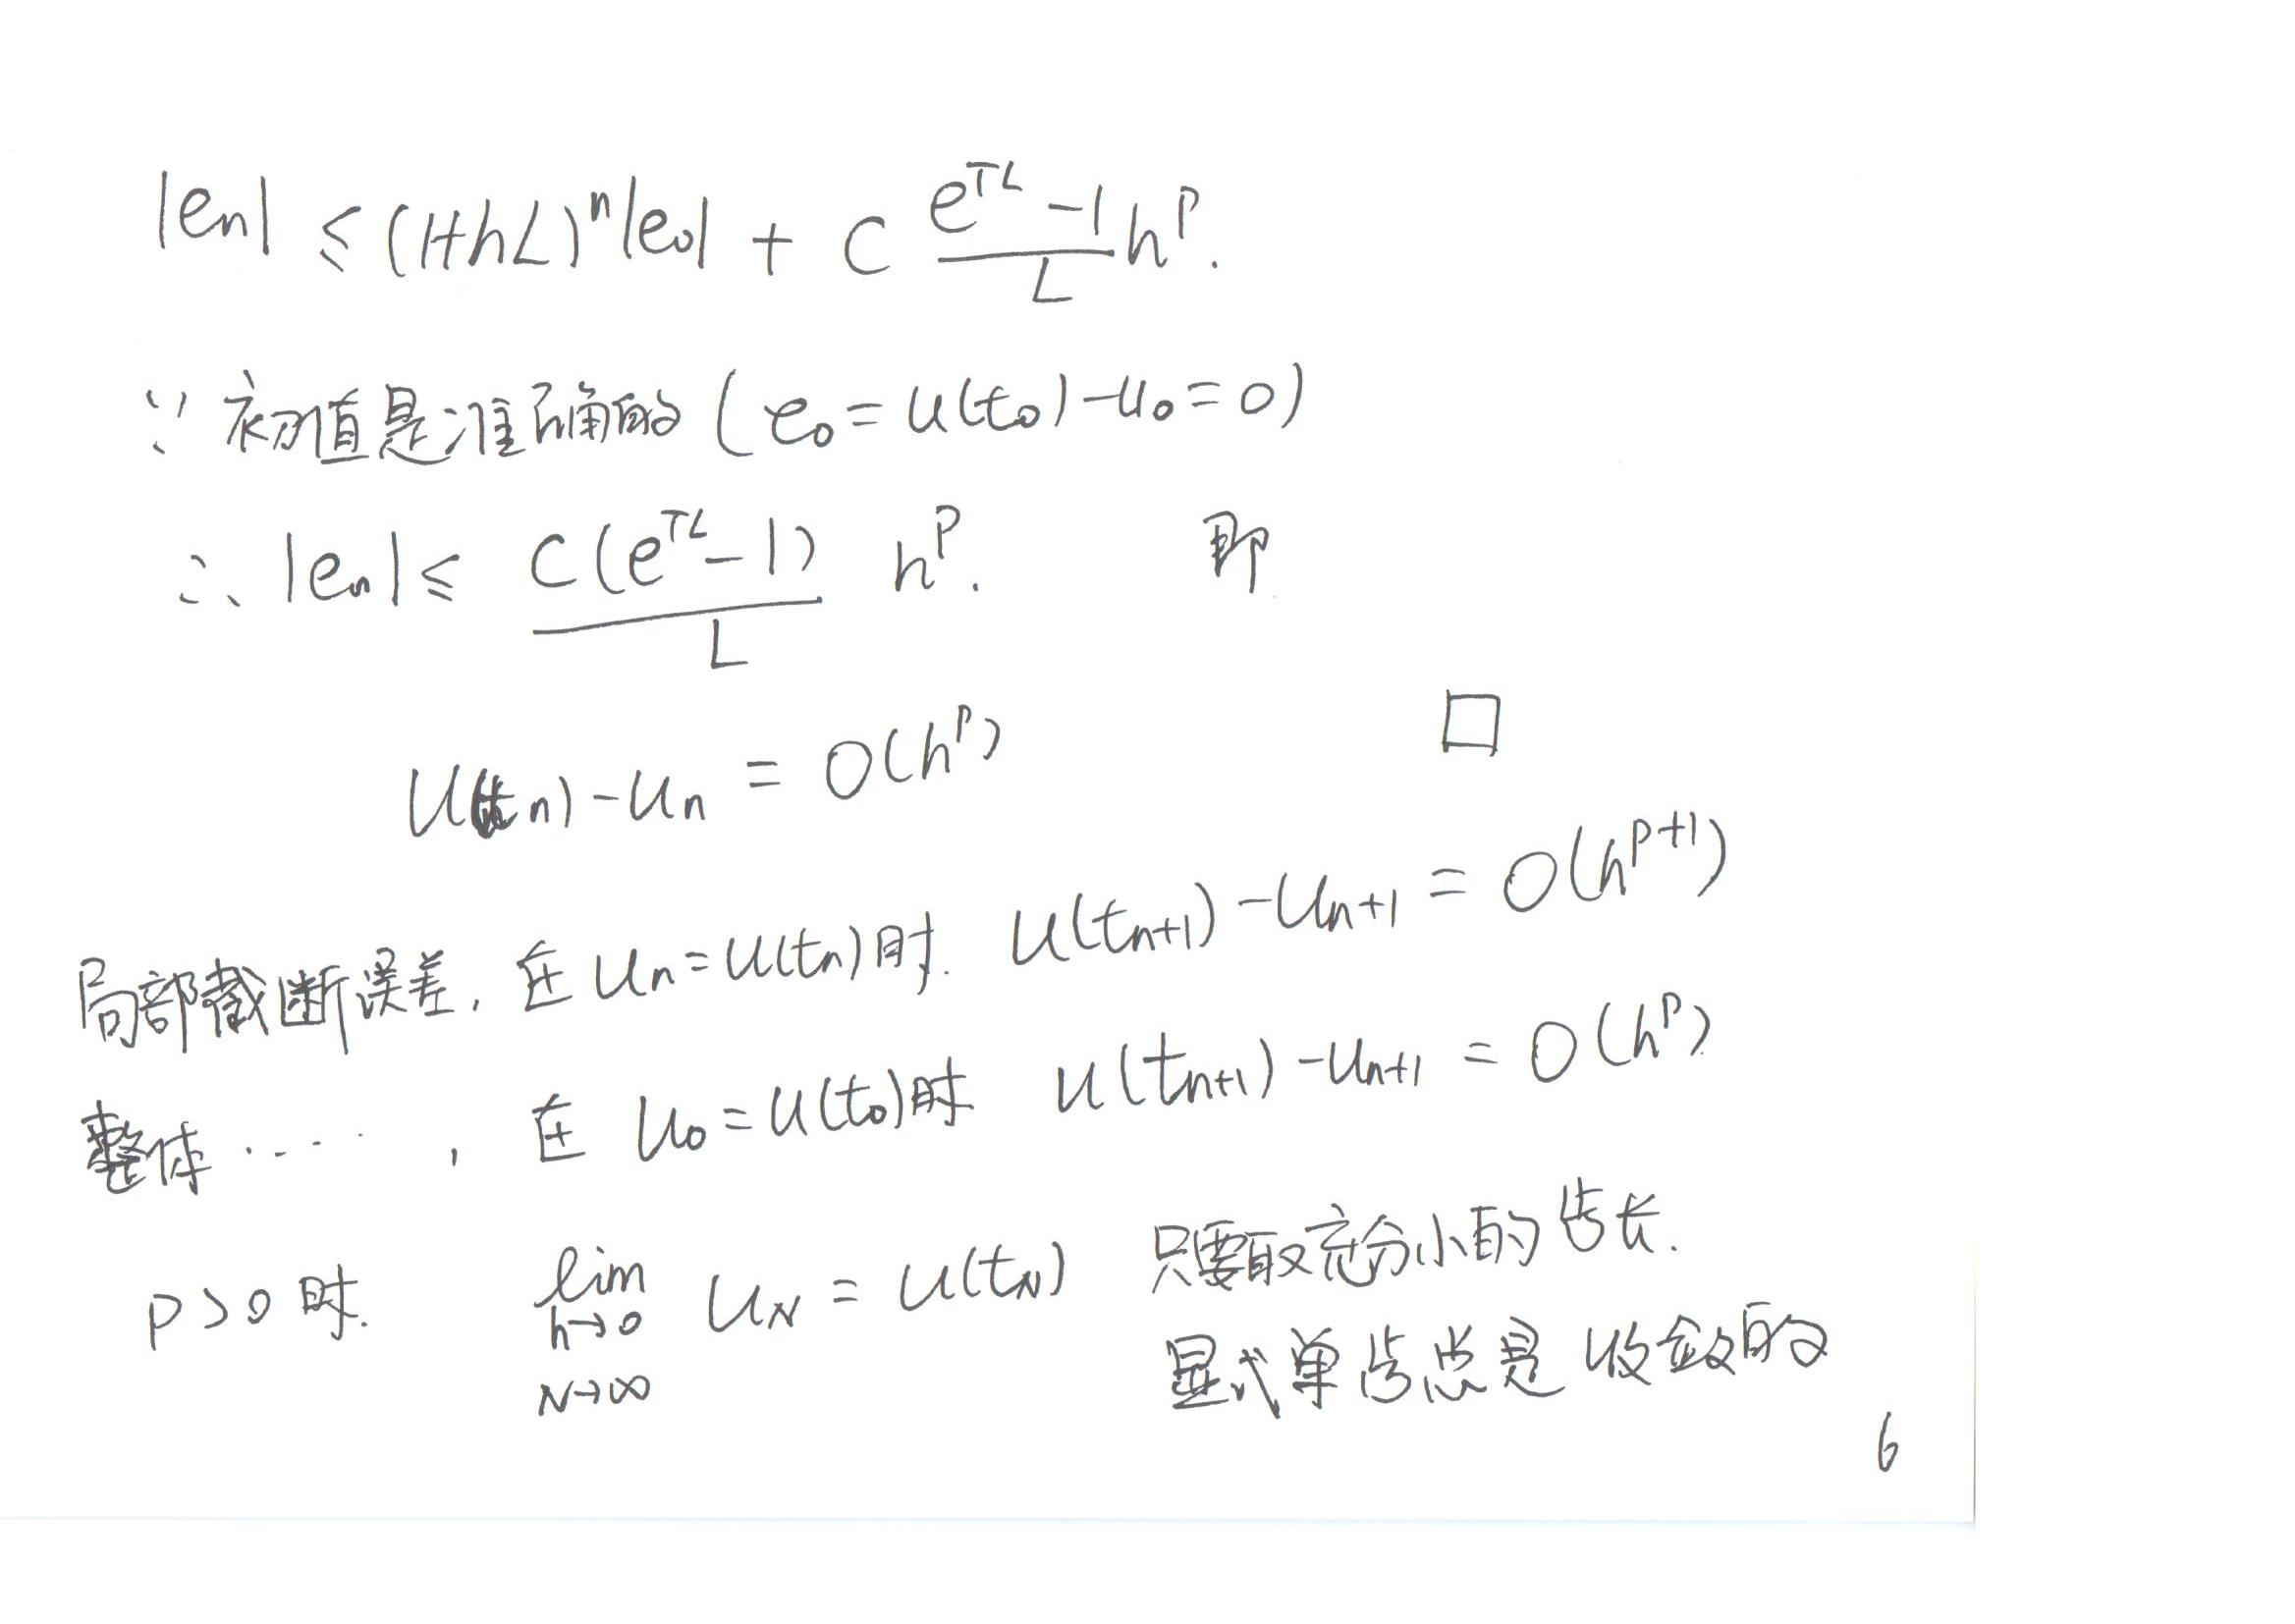 |eₙ| ≤ (1+hL)ⁿ|e₀| + C (e^{TL} − 1)/L h^p.
∵ 初值是准确的 (e₀ = u(t₀) − u₀ = 0)
∴ |eₙ| ≤ C(e^{TL} − 1)/L h^p. 即
u(tₙ) − uₙ = O(h^p) □
局部截断误差, 在 uₙ = u(tₙ) 时. u(tₙ₊₁) − uₙ₊₁ = O(h^{p+1})
整体 ······, 在 u₀ = u(t₀) 时 u(tₙ₊₁) − uₙ₊₁ = O(h^p)
p > 0 时. lim_{h→0, N→∞} u_N = u(t_N) 只要取充分小的步长.
显式单步总是收敛的
6